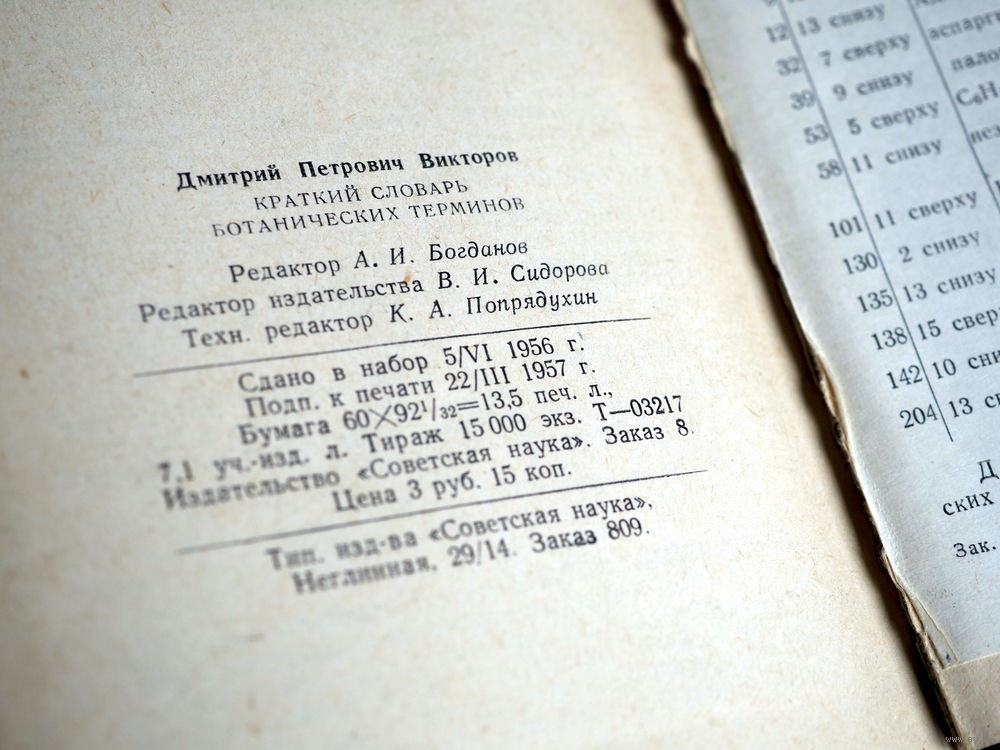 Дмитрий Петрович Викторов
КРАТКИЙ СЛОВАРЬ
БОТАНИЧЕСКИХ ТЕРМИНОВ
Редактор А. И. Богданов
Редактор издательства В. И. Сидорова
Техн. редактор К. А. Попрядухин
Сдано в набор 5/VI 1956 г.
Подп. к печати 22/III 1957 г.
Бумага 60×92¹/₃₂=13,5 печ. л.,
7,1 уч.-изд. л. Тираж 15 000 экз. Т—03217
Издательство «Советская наука». Заказ 8.
Цена 3 руб. 15 коп.
Тип. изд-ва «Советская наука»,
Неглинная, 29/14. Заказ 809.
12 13 снизу
32 7 сверху аспарги
39 9 снизу пало
53 5 сверху C₆H
58 11 снизу
101 11 сверху
130 2 снизу
135 13 снизу
138 15 свер
142 10 сни
204 13 с
Д
ских
Зак.